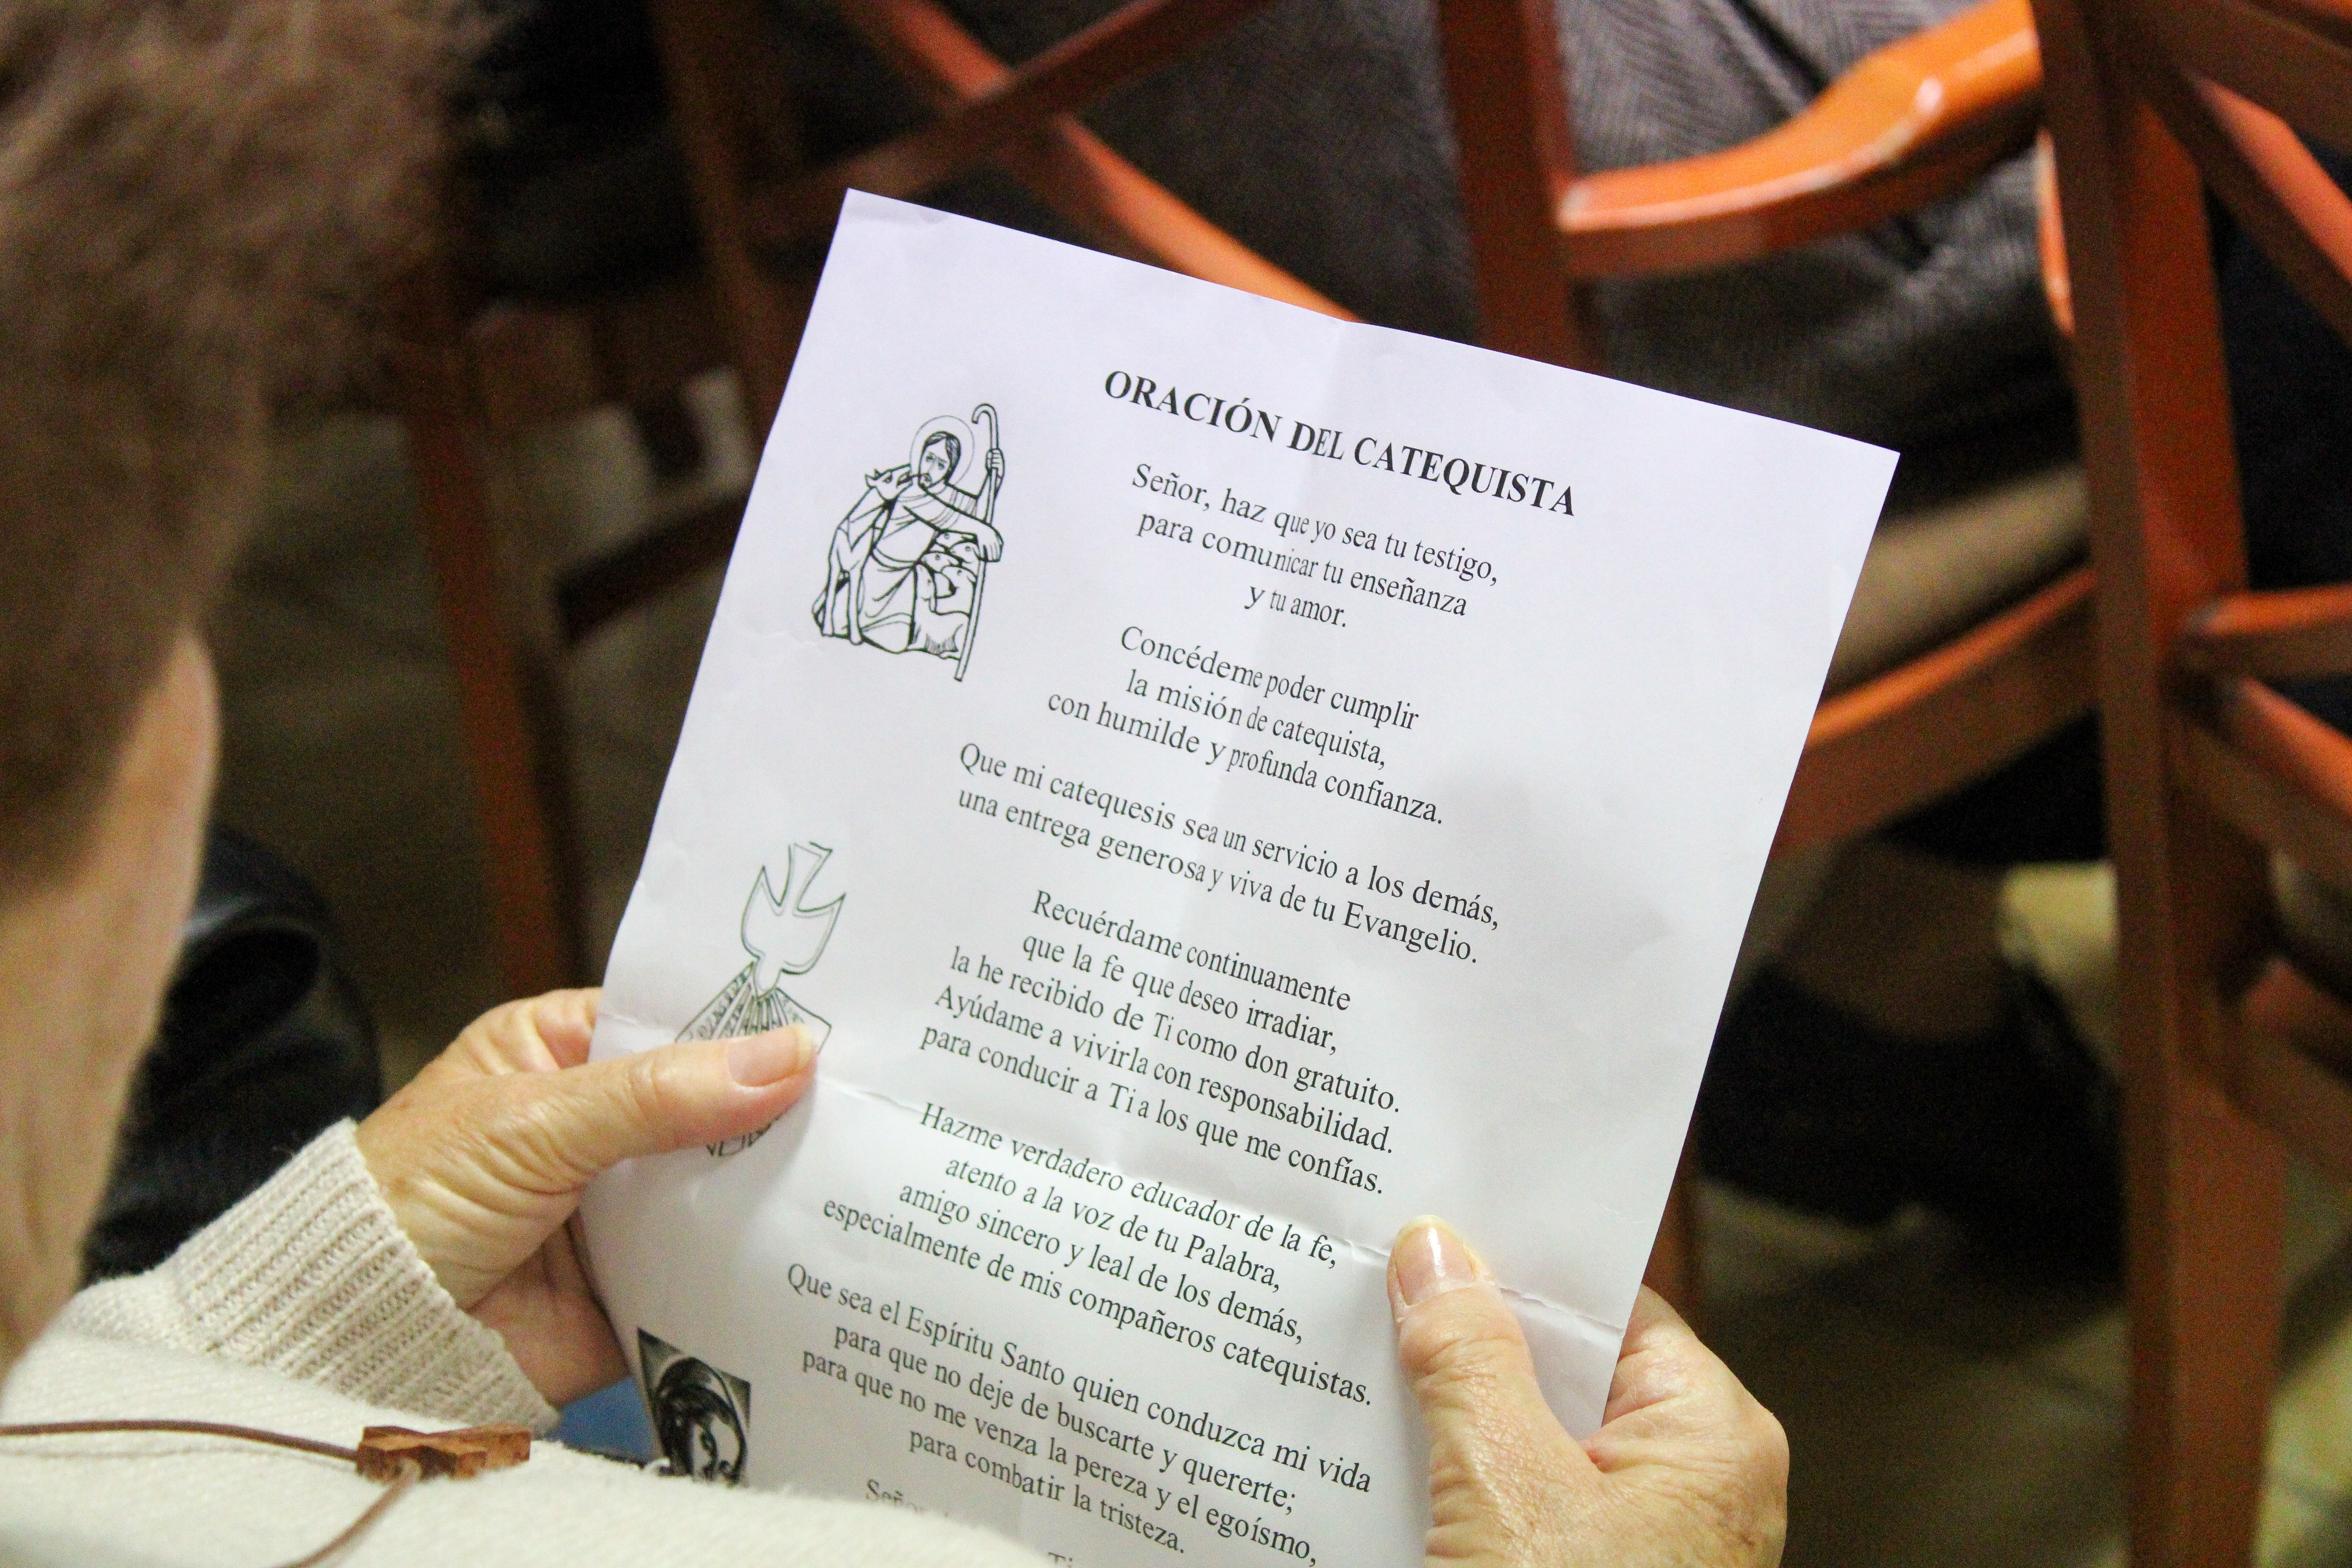 ORACIÓN DEL CATEQUISTA
Señor, haz que yo sea tu testigo,
para comunicar tu enseñanza
y tu amor.
Concédeme poder cumplir
la misión de catequista,
con humilde y profunda confianza.
Que mi catequesis sea un servicio a los demás,
una entrega generosa y viva de tu Evangelio.
Recuérdame continuamente
que la fe que deseo irradiar,
la he recibido de Ti como don gratuito.
Ayúdame a vivirla con responsabilidad.
para conducir a Ti a los que me confías.
Hazme verdadero educador de la fe,
atento a la voz de tu Palabra,
amigo sincero y leal de los demás,
especialmente de mis compañeros catequistas.
Que sea el Espíritu Santo quien conduzca mi vida
para que no deje de buscarte y quererte;
para que no me venza la pereza y el egoísmo,
para combatir la tristeza.